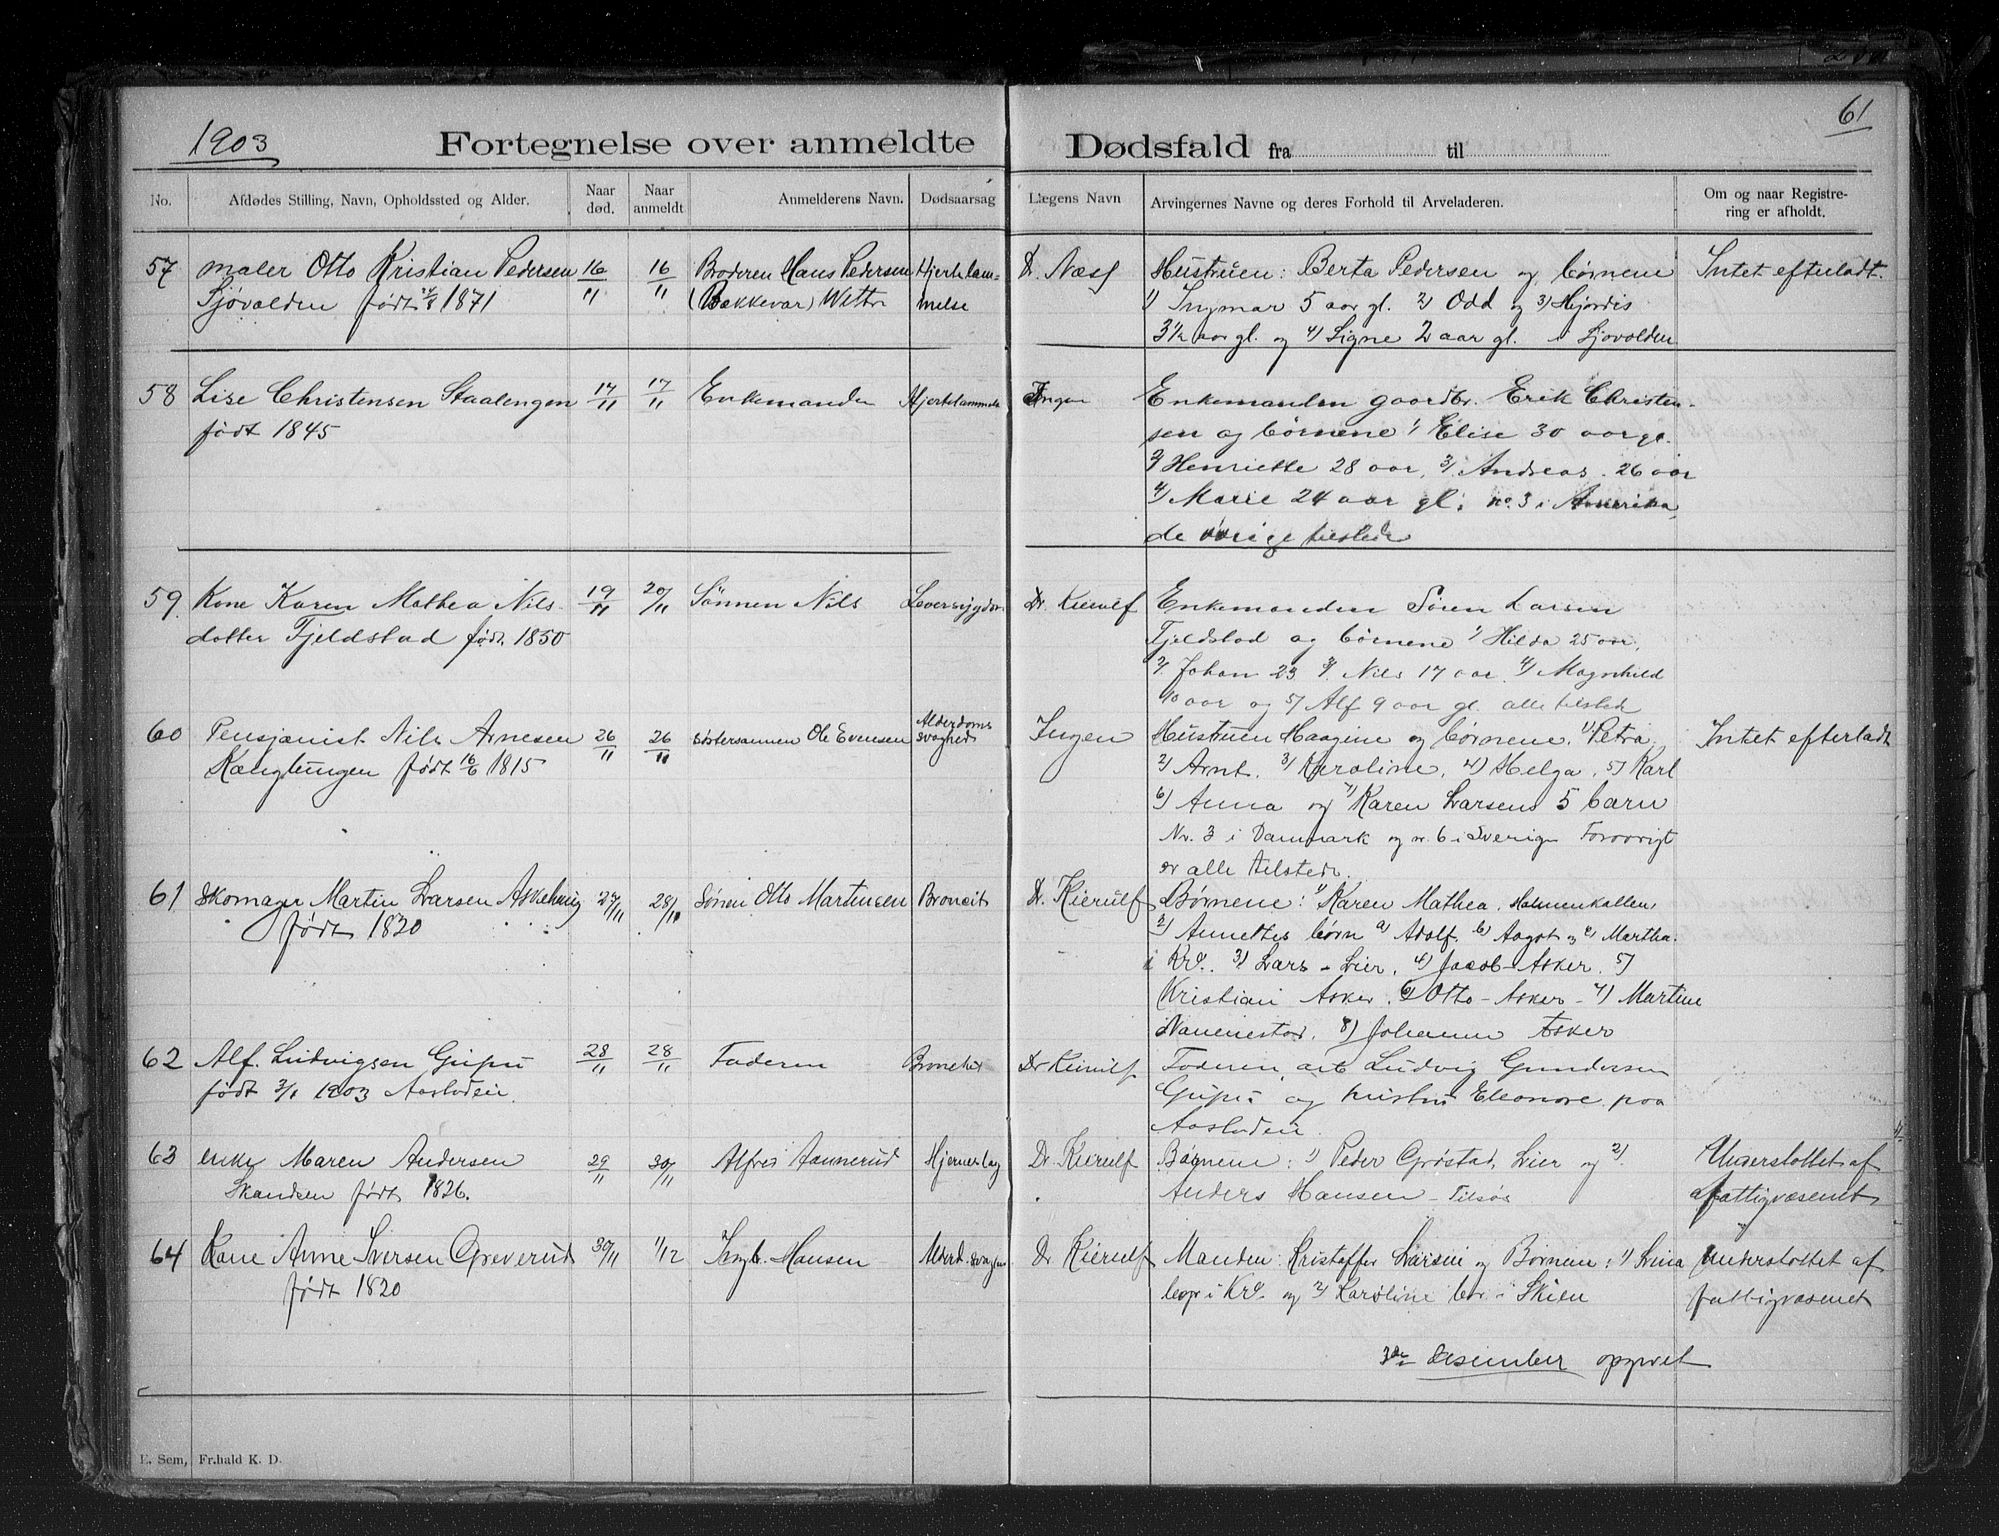 1903
61
Fortegnelse over anmeldte Dødsfald fra til
No. Afdødes Stilling, Navn, Opholdssted og Alder. Naar død. Naar anmeldt Anmelderens Navn. Dødsaarsag Lægens Navn Arvingernes Navne og deres Forhold til Arveladeren. Om og naar Registrering er afholdt.
57 maler Otto Kristian Pedersen 16/11 16/11 Broderen Hans Pedersen Hjertelam- Dr. Næss Hustruen: Berta Pedersen og børnene Intet efterladt.
Sjøvolden født 1871 (Bakkevar) melse 1) Ingmar 5 aar gl. 2) Odd og 3) Hjørdis
3½ aar gl. og 4) Signe 2 aar gl. i Sjøvolden
58 Lise Christensen Staalengen 17/11 17/11 Enkemanden Hjertelammelse Ingen Enkemanden gaardbr. Erik Christen-
født 1845 sen og børnene 1) Elise 30 aar gl.
2) Henriette 28 aar, 3) Andreas 26 aar
4) Marie 24 aar gl. no. 3 i Amerika,
de øvrige tilstede
59 Kone Karen Mathea Nils- 19/11 20/11 Sønnen Nils Leversygdom Dr. Kierulf Enkemanden Søren Larsen
datter Fjeldstad født 1850 Fjeldstad og børnene 1) Hilda 25 aar,
2) Johan 23 3) Nils 17 aar. 4) Magnhild
10 aar og 5) Alf 9 aar gl. alle tilstede
60 Pensjonist Nils Arnesen 26/11 26/11 Søstersønnen Ole Evensen Alderdoms svaghed Ingen Hustruen Haagine og børnene. 1) Petra, Intet efterladt
Konglungen født 16/6 1815 2) Arnt. 3) Karoline. 4) Helga. 5) Karl
6) Anna og 7) Karen Larsens 5 barn
Nr. 3 i Danmark og nr. 6 i Sverige Forøvrigt
er alle tilstede.
61 Skomager Martin Larsen Askehaug 27/11 28/11 Sønen Otto Martinsen Broncit Dr. Kierulf Børnene: 1) Karen Mathea, Holmenkollen
født 1820 2) Annettes børn a) Adolf. b) Aagot og c) Martha.
i Kra. 3) Lars - Lier. 4) Jacob - Asker. 5)
Kristian Asker. 6) Otto - Asker - 7) Martine
8) Johanne Asker
62 Alf. Ludvigsen 28/11 28/11 Faderen Dr Kierulf Faderen, arb. Ludvig Gundersen
født 3/1 1903 og hustru Eleonore paa
63 enke Maren Andersen 29/11 30/11 Alfred Aannerud Hjerneslag Dr. Kierulf Børnene: 1) Peder Grøstad, Lier og 2) Understøttet af
Skandsen født 1826. Anders Hansen - fattigvæsenet
64 Kone Anne Iversen Greverud 30/11 1/12 Ingb. Hansen Alderd. svaghed Dr Kierulf Manden: Kristoffer Larsen og Børnene: 1) Lina Understøttet af
født 1820 i Kra. og 2) Karoline bor i Skien fattigvæsenet
3de desember opgivet
E. Sem, Fr.hald K. D.